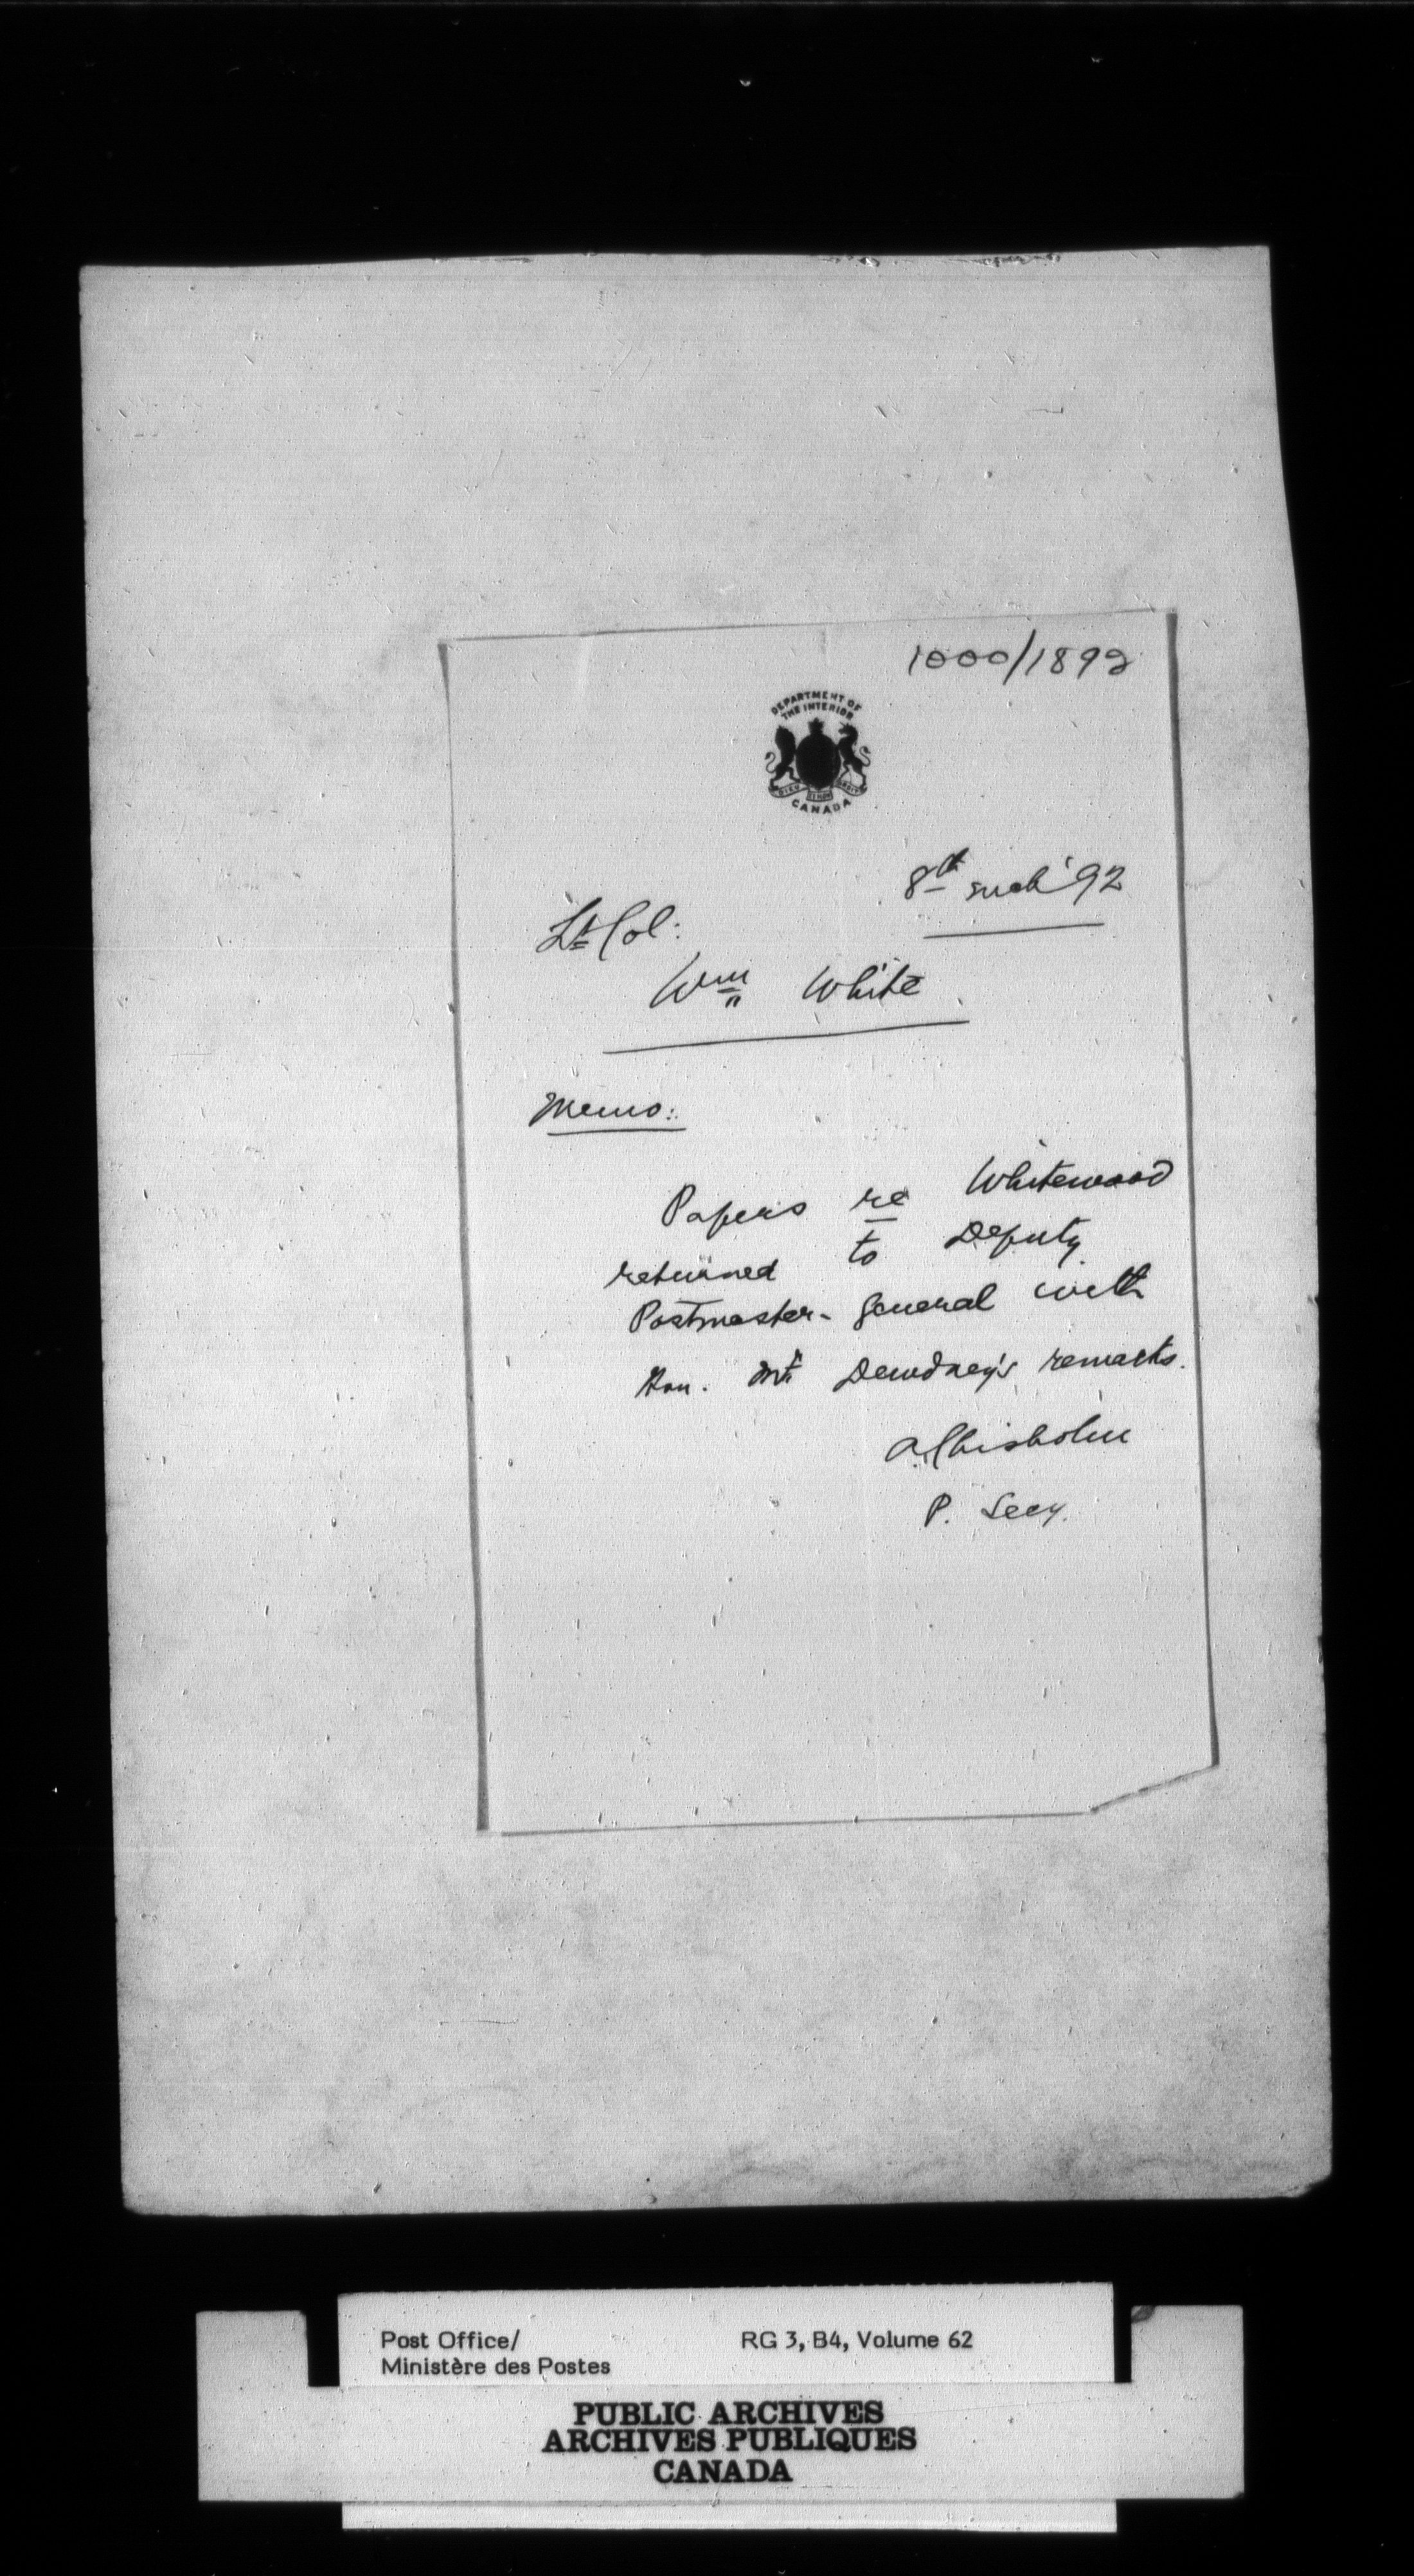 1000/1892
DEPARTMENT OF
THE INTERIOR
CANADA
8th Mch '92
Lt Col:
Wm White
Memo:
Papers re Whitewood
returned to Deputy
Postmaster-General with
Hon. Mr Dewdney's remarks.
A Chisholm
P. Secy.
Post Office/
Ministère des Postes
RG 3, B4, Volume 62
PUBLIC ARCHIVES
ARCHIVES PUBLIQUES
CANADA